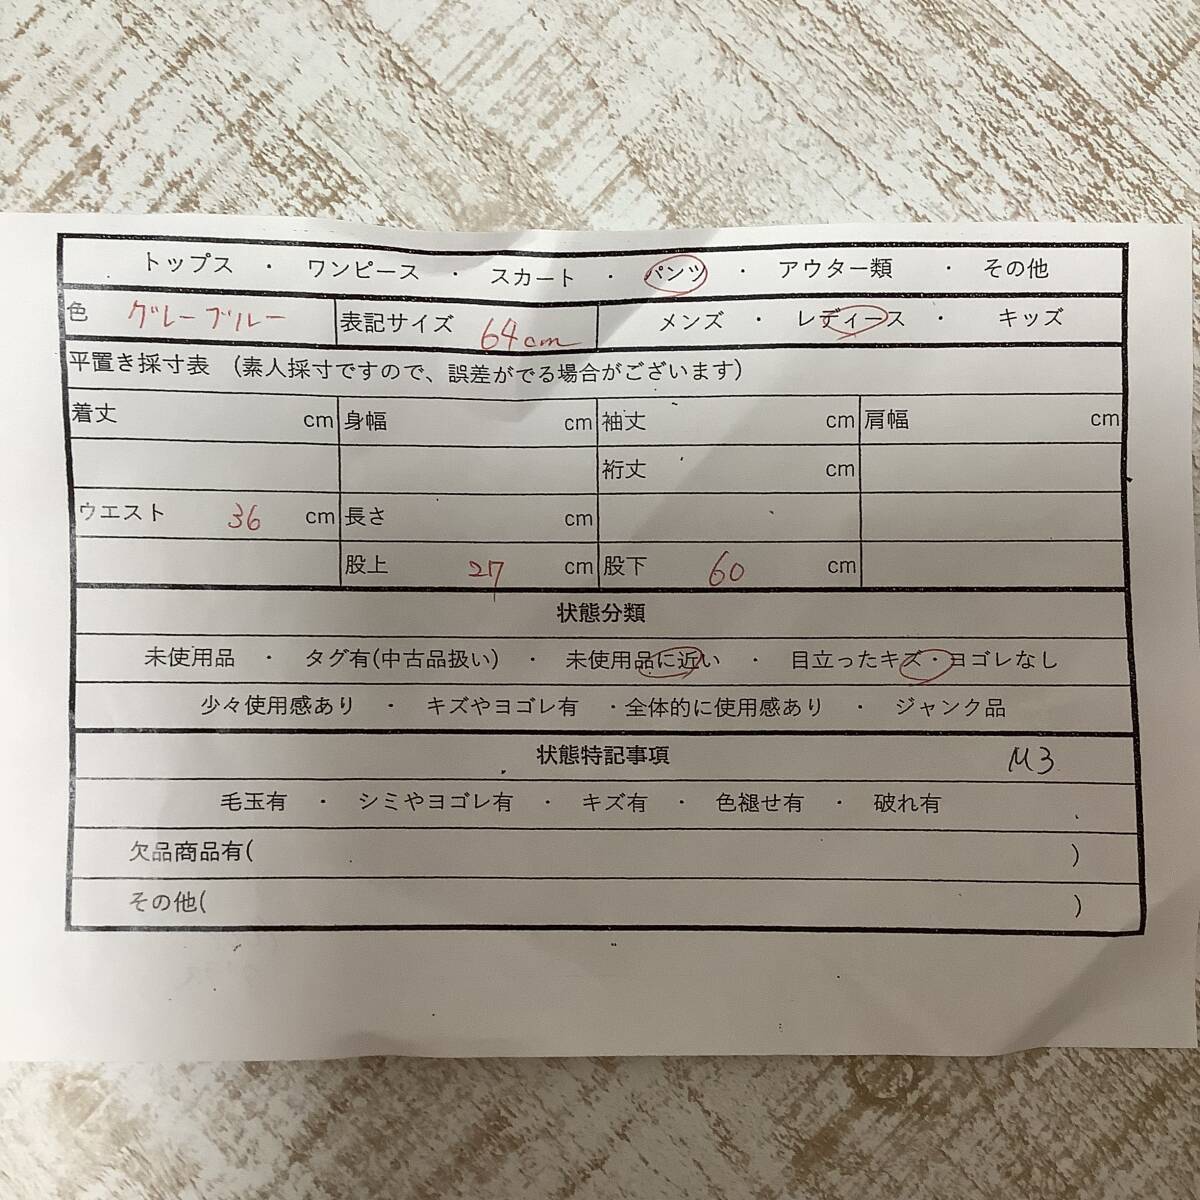 トップス ・ ワンピース ・ スカート ・ パンツ ・ アウター類 ・ その他
色 グレーブルー 表記サイズ 64cm メンズ ・ レディース ・ キッズ
平置き採寸表 (素人採寸ですので、誤差がでる場合がございます)
着丈 cm 身幅 cm 袖丈 cm 肩幅 cm
裄丈 cm
ウエスト 36 cm 長さ cm
股上 27 cm 股下 60 cm
状態分類
未使用品 ・ タグ有(中古品扱い) ・ 未使用品に近い ・ 目立ったキズ・ヨゴレなし
少々使用感あり ・ キズやヨゴレ有 ・全体的に使用感あり ・ ジャンク品
状態特記事項 M3
毛玉有 ・ シミやヨゴレ有 ・ キズ有 ・ 色褪せ有 ・ 破れ有
欠品商品有( )
その他( )